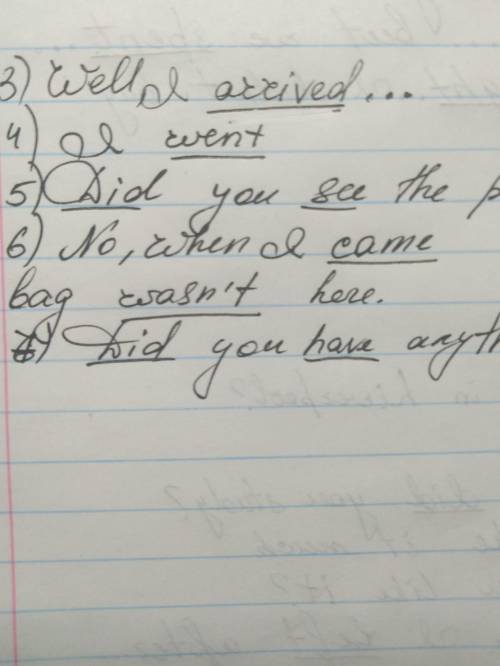 3) Well, I arrived...
4) I went
5) Did you see the
6) No, when I came
bag wasn't here.
7) Did you have